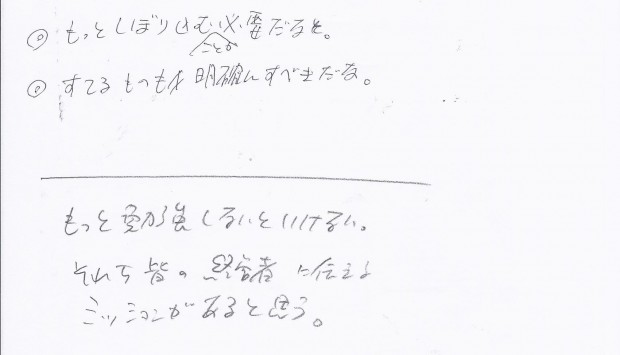 ◎ もっとしぼり込むことが必要だなと。
◎ すてるものも明確にすべきだな。
もっと勉強しないといけない。
それを皆の経営者に伝える
ミッションがあると思う。